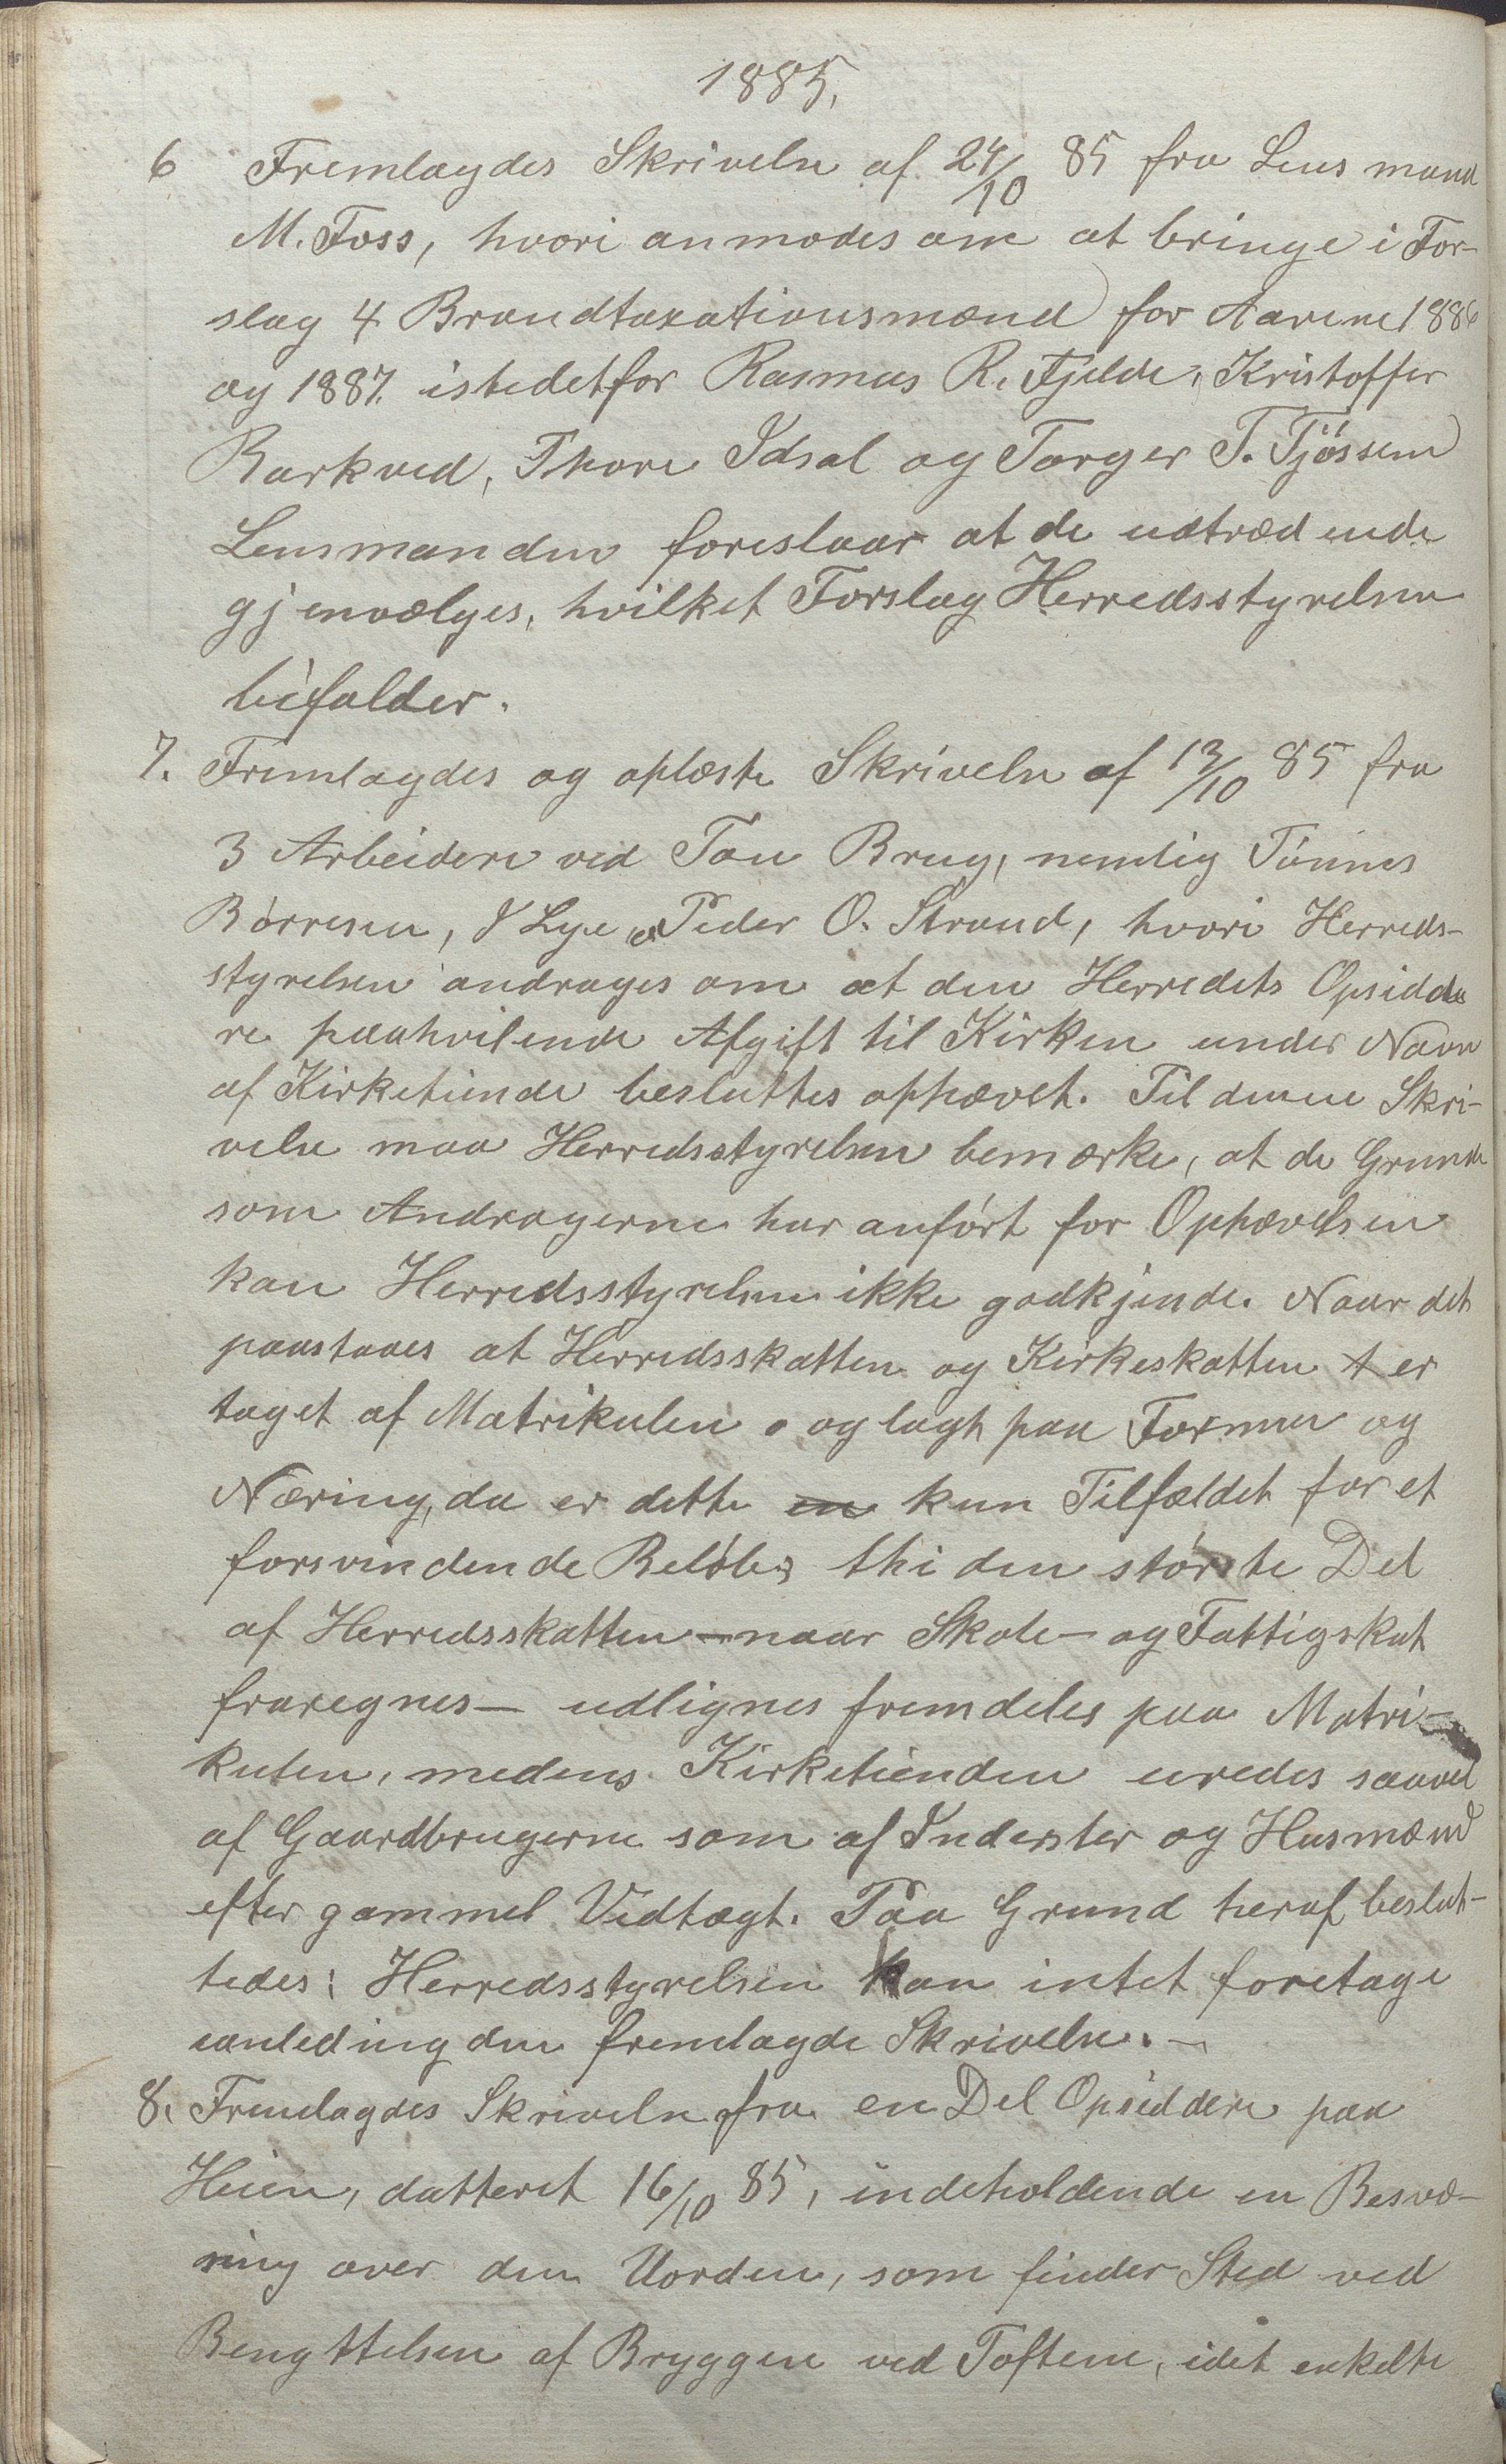 1885,
6 Fremlagdes Skrivelse af 24/10 85 fra Lensmand
M. Foss, hvori anmodes om at bringe i For-
slag 4 Brandtaxationsmænd for Aarene 1886
og 1887. istedetfor Rasmus R. Fjelde, Kristoffer
Barkved, Thore Idsal og Torger T. Tjøssem
Lensmanden foreslaar at de udtrædende
gjenvælges, hvilket Forslag Herredsstyrelsen
bifalder.
7. Fremlagdes og oplæste Skrivelse af 13/10 85 fra
3 Arbeidere ved Tau Brug, nemlig Tønnes
Børresen, I Lye og Peder O. Strand, hvori Herreds-
styrelsen andrages om at den Herredets Opsidde
re paahvilende Afgift til Kirken under Navn
af Kirketiende besluttes ophævet. Til denne Skri-
velse maa Herredsstyrelsen bemærke, at de Grunde
som Andragerne har anført for Ophævelsen
kan Herredsstyrelsen ikke godkjende. Naar det
paastaaes at Herredsskatten og Kirkeskatten er
taget af Matrikulen og lagt paa Formue og
Næring, da er dette en kun Tilfældet for et
forsvindende Beløb, thi den største Del
af Herredsskatten – naar Skole- og Fattigskat
fraregnes – udlignes fremdeles paa Matri-
kulen, medens Kirketienden uredes saavel
af Gaardbrugerne som af Inderster og Husmænd
efter gammel Vedtægt. Paa Grund heraf beslut-
tedes: Herredsstyrelsen kan intet foretage
ianleding den fremlagde Skrivelse. –
8. Fremlagdes Skrivelse fra en Del Opsiddere paa
Heien, datteret 16/10 85, indeholdende en Besvæ-
ring over den Uorden, som finder Sted ved
Benyttelsen af Bryggen ved Toftene, idet enkelte